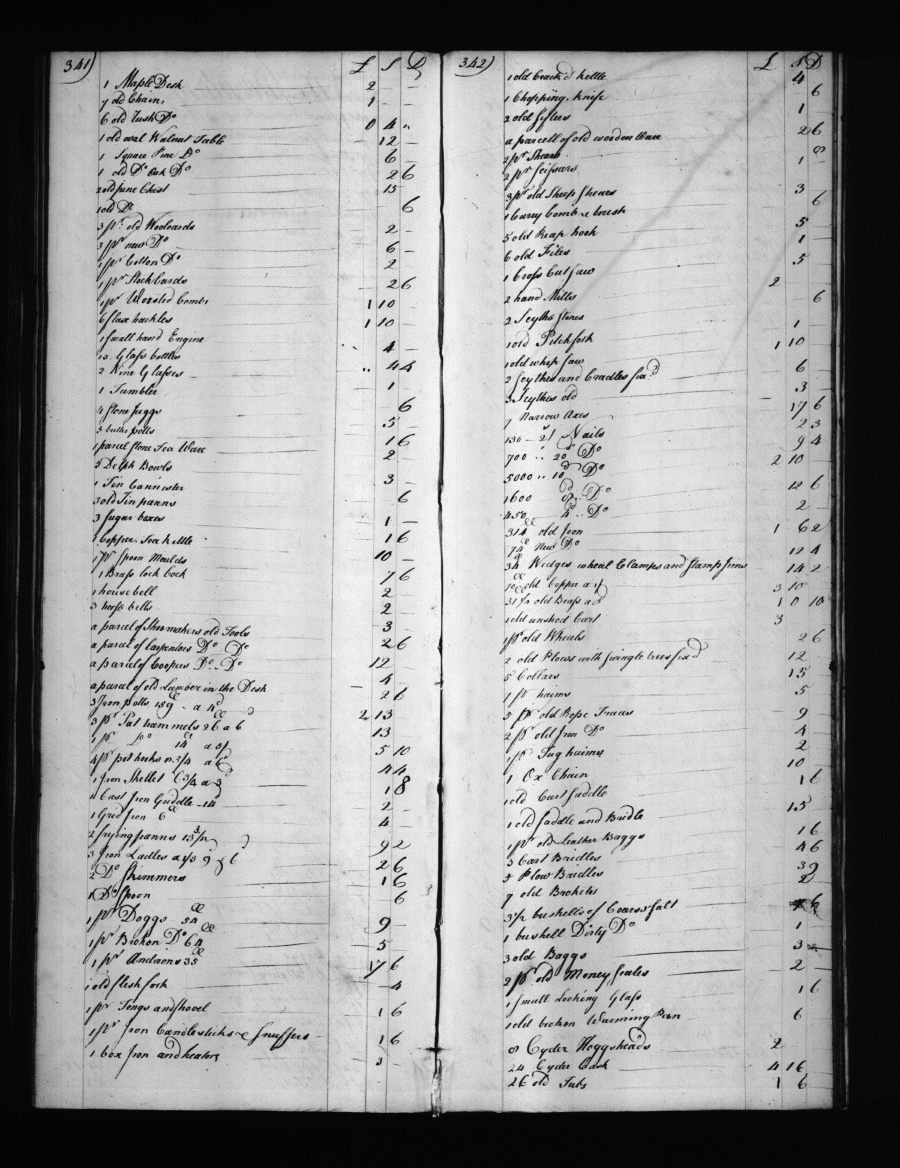 341) £ S D
1 Maple Desk 2 - -
7 old Chairs 1 - -
6 old Rush Do 0 4 "
1 old oval Walnut Table - 12 -
1 Square Pine Do 6
1 old Do Oak Do 2 6
2 old pine Chest 15
1 old Do 6
3 pr old Woolcards 2 -
3 pr new Do 6 -
1 pr Cotton Do 2
1 pr Stock Cards 2 6
1 pr Worsted Combs 1 10
6 flax hackles 1 10 -
1 small hand Engine
10 Glass bottles 4 -
2 Wine Glasses " 4 4
1 Tumbler 1 -
4 stone juggs 6
3 butter potts 5 -
1 parcel stone Tea Ware 1 6
5 Delph Bowls 2
1 Tin Cannister 3 -
3 old Tin panns 6
3 sugar boxes 1 -
1 Copper Tea kettle 1 6
1 pr Spoon Moulds 10 -
1 Brass lock Cock 7 6
1 house bell 2
3 horse bells 2
a parcel of Shoemakers old Tools 3 -
a parcel of Carpenters Do Do 2 6
a parcel of Coopers Do Do 12
a parcel of old Lumber in the Desk 4 -
3 Iron potts 159 a 4d 2 13
3 pr Pat hammels 26 a 6 13
1 pr Do 14 a
4 pr pot hooks 5 10
1 Iron Skellet 4 4
1 Cast Iron Griddle 14 1 8
1 Grid Iron 6 2 -
2 frying panns 13 1/2 4 -
3 Iron Ladles 9 2
2 Do Skimmers 2 6
1 Do Spoon 1 6
1 pr Doggs 54 9 -
1 pr Broken Do 64 5
1 pr Andirons 35 7 6
1 old flesh fork 4
1 pr Tongs and shovel 1 6
1 pr Iron Candlesticks & Snuffers 1 6
1 box Iron and heaters 3 -
342) £ S D
1 old Crack'd kettle 4
1 Chopping knife 6
2 old sifters 1
a parcell of old wooden Ware 2 6
2 pr Shears 8
2 pr Scissars 1
3 pr old Sheep Shears 3
1 Curry Comb & brush 6
5 old Reap hook 5
6 old Files 1
1 Cross Cut saw 5
2 hand Mills 2
2 Scythe stones 6
1 old Pitchfork 1
1 old whip saw 1 10
2 Scythes and Cradles fixd 6
3 Scythes old 3
7 Narrow Axes 17 6
130 - 21 Nails 2 3
700 " 20 Do 9 4
5000 " 10 Do 2 10
1600 8 Do 12 6
450 4 Do 2 -
314 old Iron 1 6 2
74 New Do 12 4
34 Wedges wheal Clamps and stamp Irons 14 2
old Copper a 3 10
31 1/2 old Brass a 1 0 10
1 old unshod Cart 3
1 pr old Wheals 2 6
2 old Plows with swingle trees fixd 12
5 Collars 15
7 pr haims 5
5 pr old Rope Traces 9
2 pr old Iron Do 4
1 pr Tug haimes 2
1 Ox Chain 10
1 old Cart saddle 1 6
1 old saddle and Bridle 15
1 pr old Leather Baggs 1 6
3 Cart Bridles 4 6
5 Plow Bridles 3 9
7 old Do
3 1/2 bushells of Coarse salt
1 bushell Dirty Do 1
3 old Baggs 3 -
2 pr old Money Scales 2 -
1 small Looking Glass 1 6
1 old broken Warming Pan 6
8 Cyder Hoggsheads 2
24 Cyder Cask 4 16
26 old Tubs 1 6